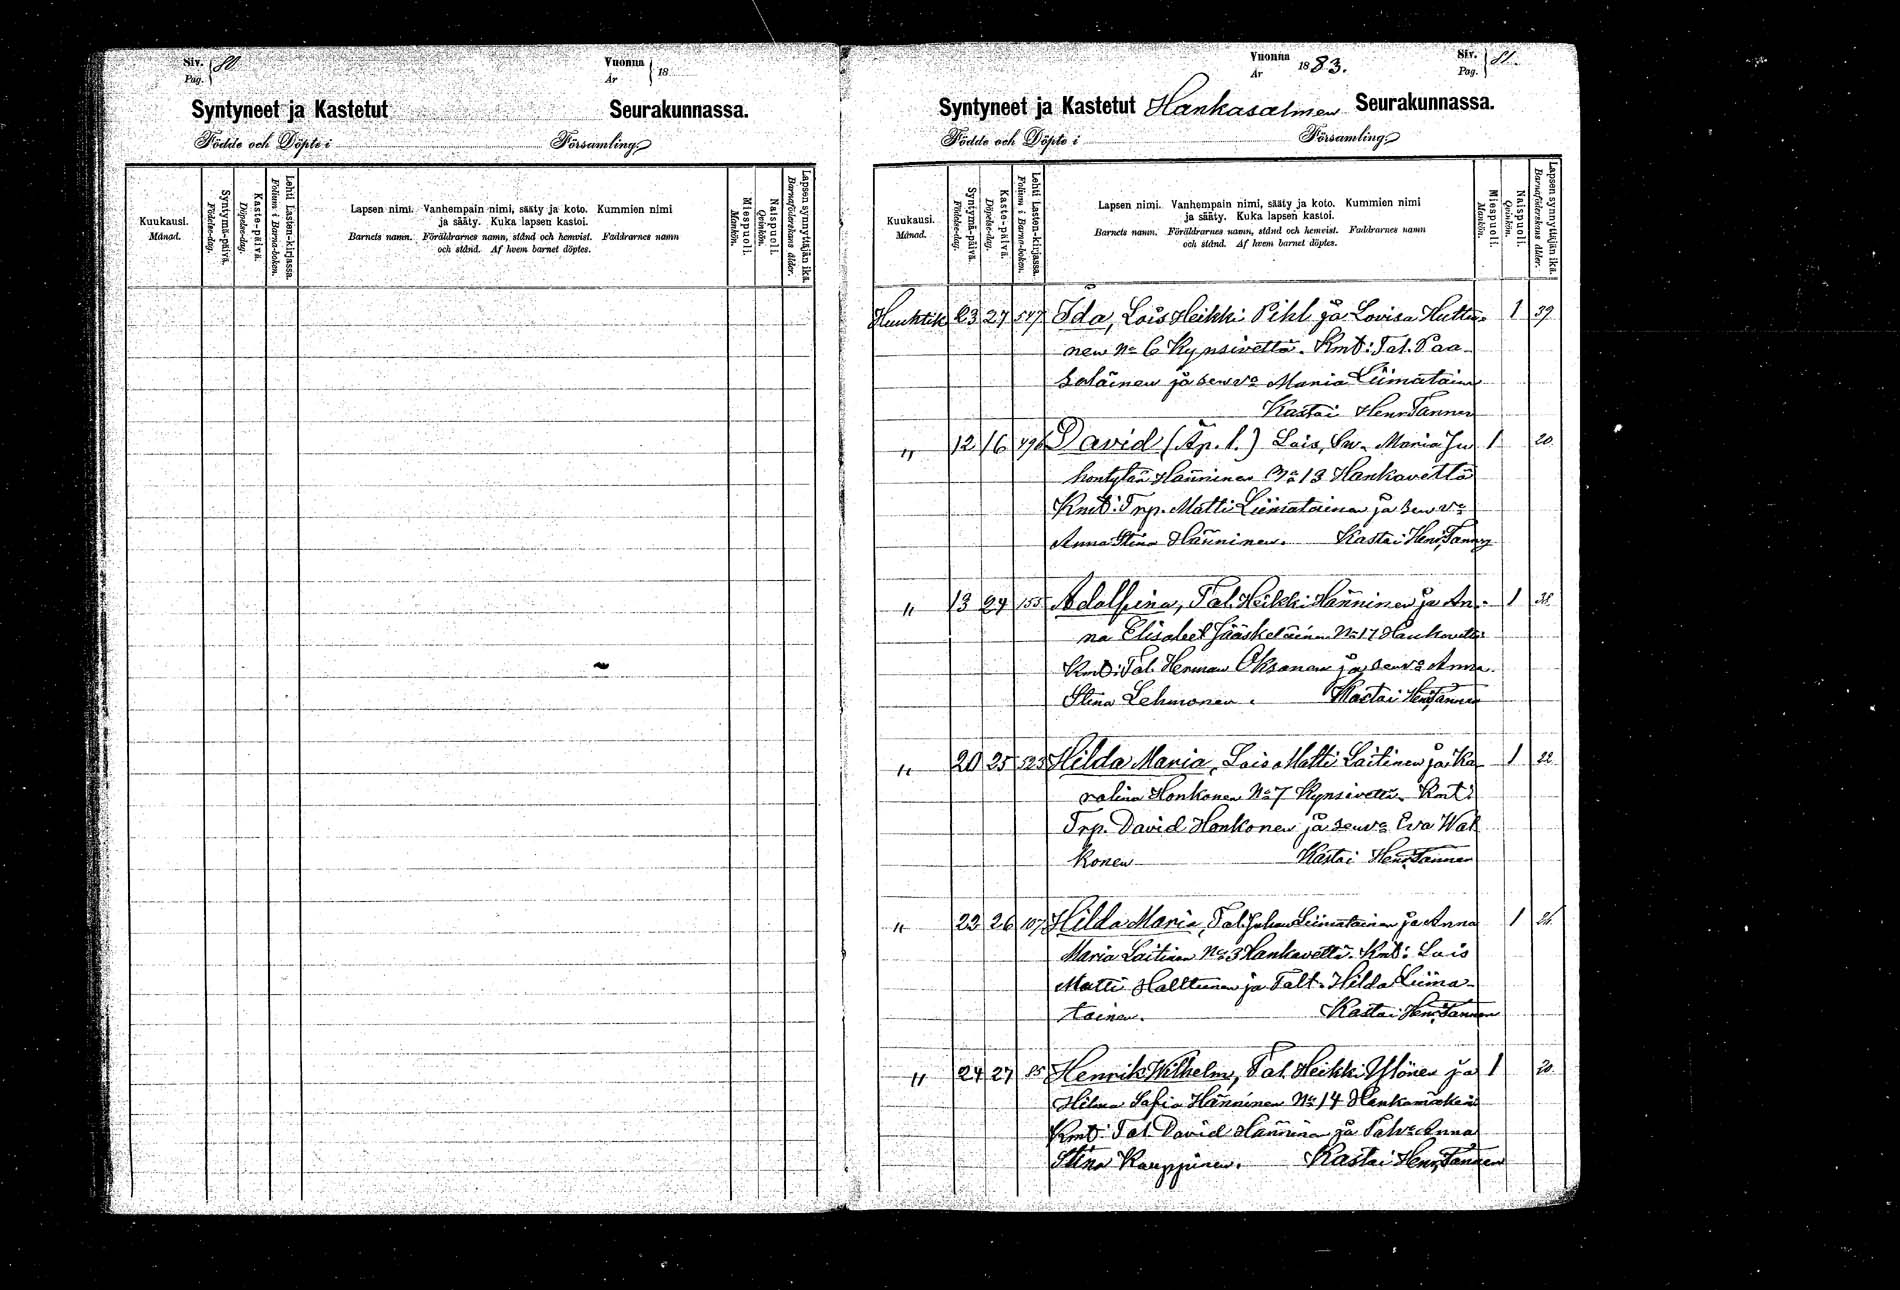 Siv. 80.
Pag.
Vuonna 18
År
Syntyneet ja Kastetut Seurakunnassa.
Födde och Döpte i Församling
Kuukausi.
Månad.
Syntymä-päivä.
Födelse-dag.
Kaste-päivä.
Döpelse-dag.
Lehti Lasten-kirjassa.
Folium i Barna-boken.
Lapsen nimi. Vanhempain nimi, sääty ja koto. Kummien nimi
ja sääty. Kuka lapsen kastoi.
Barnets namn. Föräldrarnes namn, stånd och hemvist. Faddrarnes namn
och stånd. Af hvem barnet döptes.
Miespuoli.
Mankön.
Naispuoli.
Qvinkön.
Lapsen synnyttäjän ikä.
Barnaföderskans ålder.
Siv. 81.
Pag.
Vuonna 1883.
År
Syntyneet ja Kastetut Hankasalmen Seurakunnassa.
Födde och Döpte i Församling
Kuukausi.
Månad.
Syntymä-päivä.
Födelse-dag.
Kaste-päivä.
Döpelse-dag.
Lehti Lasten-kirjassa.
Folium i Barna-boken.
Lapsen nimi. Vanhempain nimi, sääty ja koto. Kummien nimi
ja sääty. Kuka lapsen kastoi.
Barnets namn. Föräldrarnes namn, stånd och hemvist. Faddrarnes namn
och stånd. Af hvem barnet döptes.
Miespuoli.
Mankön.
Naispuoli.
Qvinkön.
Lapsen synnyttäjän ikä.
Barnaföderskans ålder.
Huuhtik. 23 27 547 Ida, Lois Heikki Pihl ja Lovisa Huttu- 1 39
nen No 6 Kynsivettä. Kmt: Tal. Paa-
salainen ja sen vo Maria Liimatain
Kastoi Henr. Tanner
" 12 16 496 David (Äp. l.) Lois, Maria Ju 1 20
hontytär Hänninen No 13 Hankavettä
Kmt: Trp. Matti Liimatainen ja sen vo
Anna Stina Hänninen. Kastoi Henr. Tanner
" 13 24 155 Adolfina, Tal. Heikki Hänninen ja An- 1 38
na Elisabet Jääskeläinen No 17 Hankavettä
Kmt: Tal. Herman Oksanen ja sen vo Anna
Stina Lehmonen. Kastoi Henr. Tanner
" 20 25 523 Hilda Maria, Lois Matti Laitinen ja Ka- 1 22
rolina Honkonen No 7 Kynsivettä. Kmt:
Trp. David Honkonen ja sen vo Eva Wal
konen Kastoi Henr. Tanner
" 23 26 107 Hilda Maria, Tal. Juhan Liimatainen ja Anna 1 24
Maria Laitinen No 3 Hankavettä. Kmt: Lois
Matti Halttunen ja Talt. Hilda Liima-
tainen. Kastoi Henr. Tanner
" 24 27 85 Henrik Wilhelm, Tal. Heikki Ylönen ja 1 20
Hilma Sofia Hänninen No 14 Hankamäkeä
Kmt: Tal. David Hänninen ja Talvo Anna
Stina Kauppinen. Kastoi Henr. Tanner